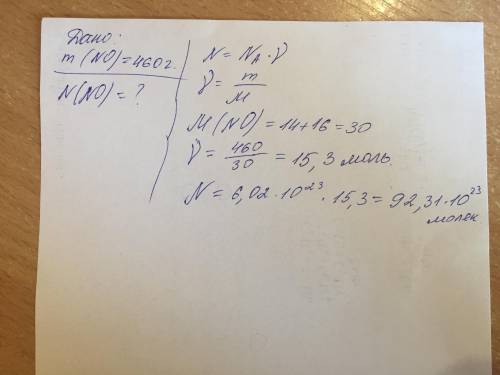 Дано:
m(NO)=460г.
N(NO)=?
N=N_A·ν
ν=m/M
M(NO)=14+16=30
ν=460/30=15,3 моль.
N=6,02·10²³·15,3=92,31·10²³
молек